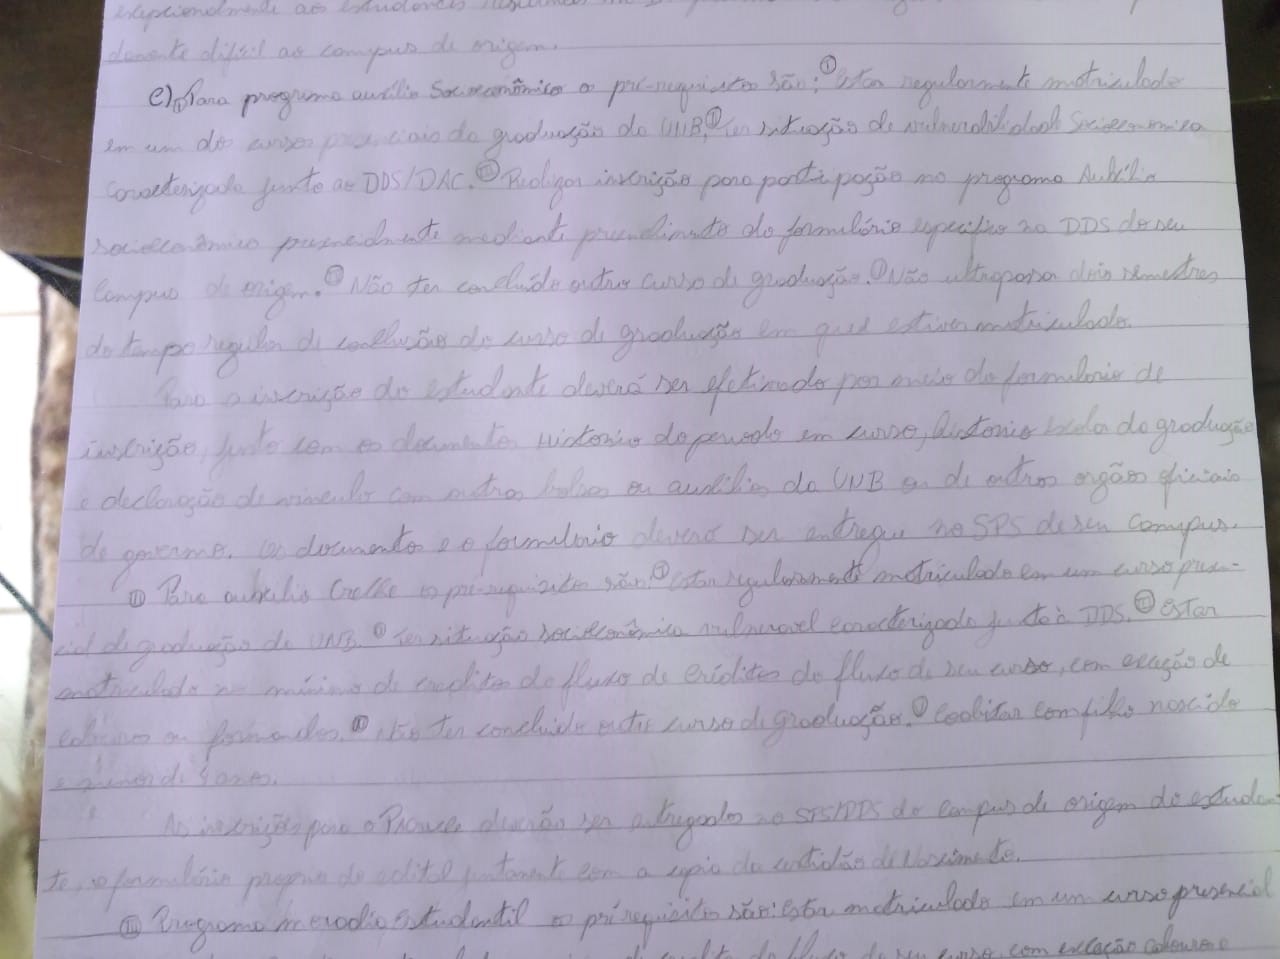 excepcionalmente aos estudantes
damente difícil ao campus de origem.
e) I Para programa auxílio Socioeconômico o pré-requisitos são: I Estar regularmente matriculado
em um do cursos presenciais da graduação da UNB, II Ter situação de vulnerabilidade Socioeconomica
caracterizada junto ao DDS/DAC. III Realizar inscrição para participação no programa Auxílio
socioeconômico presencialmente mediante preenchimento do formulário específico na DDS do seu
Campus de origem. IV Não ter concluído outro curso de graduação. V Não ultrapassar dois semestres
do tempo regular de conclusão do curso de graduação em que estiver matriculado.
Para a inscrição do estudante deverá ser efetivado por meio do formulario de
inscrição, junto com os documentos Historico do periodo em curso, Historico da graduação
e declaração de vinculo com outras bolsas ou auxílios da UNB ou de outros orgãos oficiais
de governo. Os documento e o formulário deverá ser entregue no SPS de seu Campus.
II Para auxilio Creche o pré-requisitos são: I Estar regularmente matriculado em um curso presen-
cial de graduação da UNB. II Ter situação socioeconômica vulneravel caracterizado junto à DDS. III Estar
matriculado no mínimo de creditos do fluxo de créditos do fluxo de seu curso, com exceção de
calouros ou formandos. IV Não ter concluido outro curso de graduação. V Coabitar com filho nascido
e menor de 5 anos.
As inscrições para o deverão ser entregados no SPS/DDS do campus de origem do estudan-
te, o formulário proprio do edital juntamente com a copia da certidão de Nascimento.
III Programa moradia estudantil os pré-requisitos são: Estar matriculado em um curso presencial
do fluxo de seu curso, com exceção calouro e